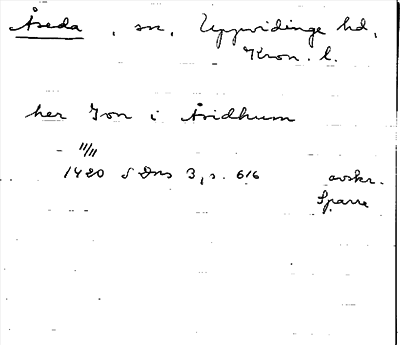 Åseda, sn, Uppvidinge hd,
Kron. l.
her Jon i Åsidhum
11/11
1420 SDns 3, s. 616 avskr.
Sparre